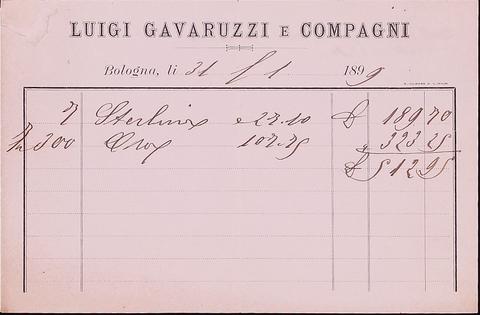 LUIGI GAVARUZZI E COMPAGNI
Bologna, li 31 / 1 1899
7 Sterline 27.10 £ 189 70
300 Oro 107.75 " 323 25
£ 512 95